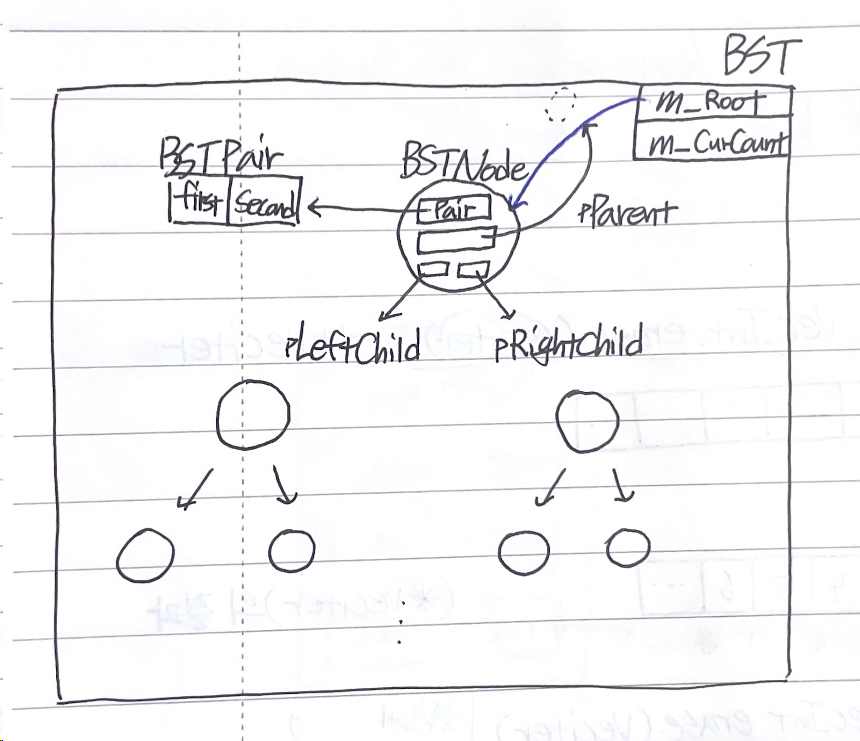 BST
m_Root
m_CurCount
BSTPair
first second
BSTNode
Pair
pParent
pLeftChild pRightChild